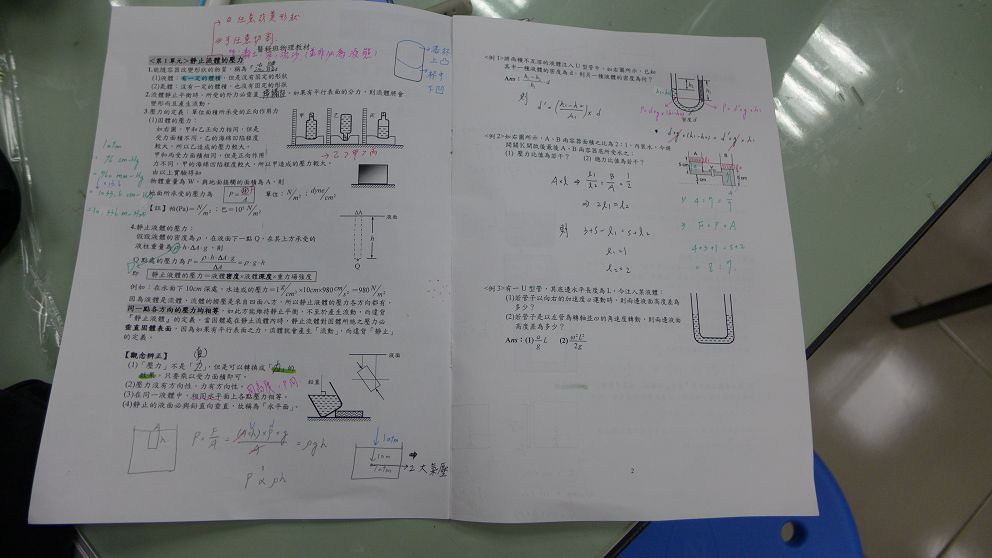 ①任意改變形狀
②可任意切割
醫懋班物理教材
<第1單元>靜止流體的壓力
1.能隨容器改變形狀的物質,稱為「流體」
(1)液體:有一定的體積,但是沒有固定的形狀
(2)氣體:沒有一定的體積,也沒有固定的形狀
2.液體靜止平衡時,所受的外力必垂直接觸面,如果有平行表面的分力,則流體將會
變形而且產生流動。
3.壓力的定義:單位面積所承受的正向作用力
(1)固體的壓力:
如右圖,甲和乙正向力相同,但是
受力面積不同,乙的海綿凹陷程度
較大,所以乙造成的壓力較大。
甲和丙受力面積相同,但是正向作用
力不同,甲的海綿凹陷程度較大,所以甲造成的壓力較大。
由以上實驗得知
物體重量為 W,與地面接觸的面積為 A,則
地面所承受的壓力為 單位:N/m²;dyne/cm²
【註】帕(Pa)=N/m²;巴=10⁵ N/m²
甲 乙 丙
乙>甲>丙
1atm
=76 cm-Hg
=760 mm-Hg
4.靜止液體的壓力:
假設液體的密度為ρ,在液面下一點Q,在其上方承受的
液柱重量為ρ·h·ΔA·g,則
Q點處的壓力為 P=ρ·h·ΔA·g/ΔA=ρ·g·h
靜止液體的壓力=液體密度×液體深度×重力場強度
ΔA 液面
h
Q
例如:在水面下10cm深處,水造成的壓力=1g/cm³×10cm×980cm/s²=980N/m²
因為液體是流體,流體的擠壓是來自四面八方,所以靜止液體的壓力各方向都有,
同一點各方向的壓力均相等,如此方能維持靜止平衡,不至於產生流動,而違背
「靜止液體」的定義。當固體處在靜止流體內時,靜止流體對固體所施之壓力必
垂直固體表面,因為如果有平行表面之力,流體就會產生「流動」,而違背「靜止」
的定義。
【觀念辨正】
(1)「壓力」不是「力」,但是可以轉換成「力」的
效果,只要乘以受力面積即可。
(2)壓力沒有方向性,力有方向性。
(3)在同一液體中,相同水平面上各點壓力相等。
(4)靜止的液面必與鉛直向垂直,故稱為「水平面」。
液面
鉛直
A
h
P=F/A=(A×h)×ρ×g/A=ρgh
P∝ρh
1atm
→2大氣壓
<例1>將兩種不互溶的液體注入U型管中,如右圖所示,已知
其中一種液體的密度為d,則另一種液體的密度為何?
Ans:h₁-h₂/h₁ d
密度 d
<例2>如右圖所示,A、B兩容器面積之比為2:1,內裝水,今將
開關K開啟後最後A、B兩容器底所受水之:
(1) 壓力比值為若干? (2) 總力比值為若干?
⇒ 2l₁=l₂
則 3+5-l₁=5+l₂
l₁=1
l₂=2
<例3>有一U型管,其底邊水平長度為L,今注入某液體:
(1)若管子以向右的加速度a運動時,則兩邊液面高度差為
多少?
(2)若管子是以左管為轉軸並ω的角速度轉動,則兩邊液面
高度差為多少?
Ans:(1) a/g L (2) ω²L²/2g
2